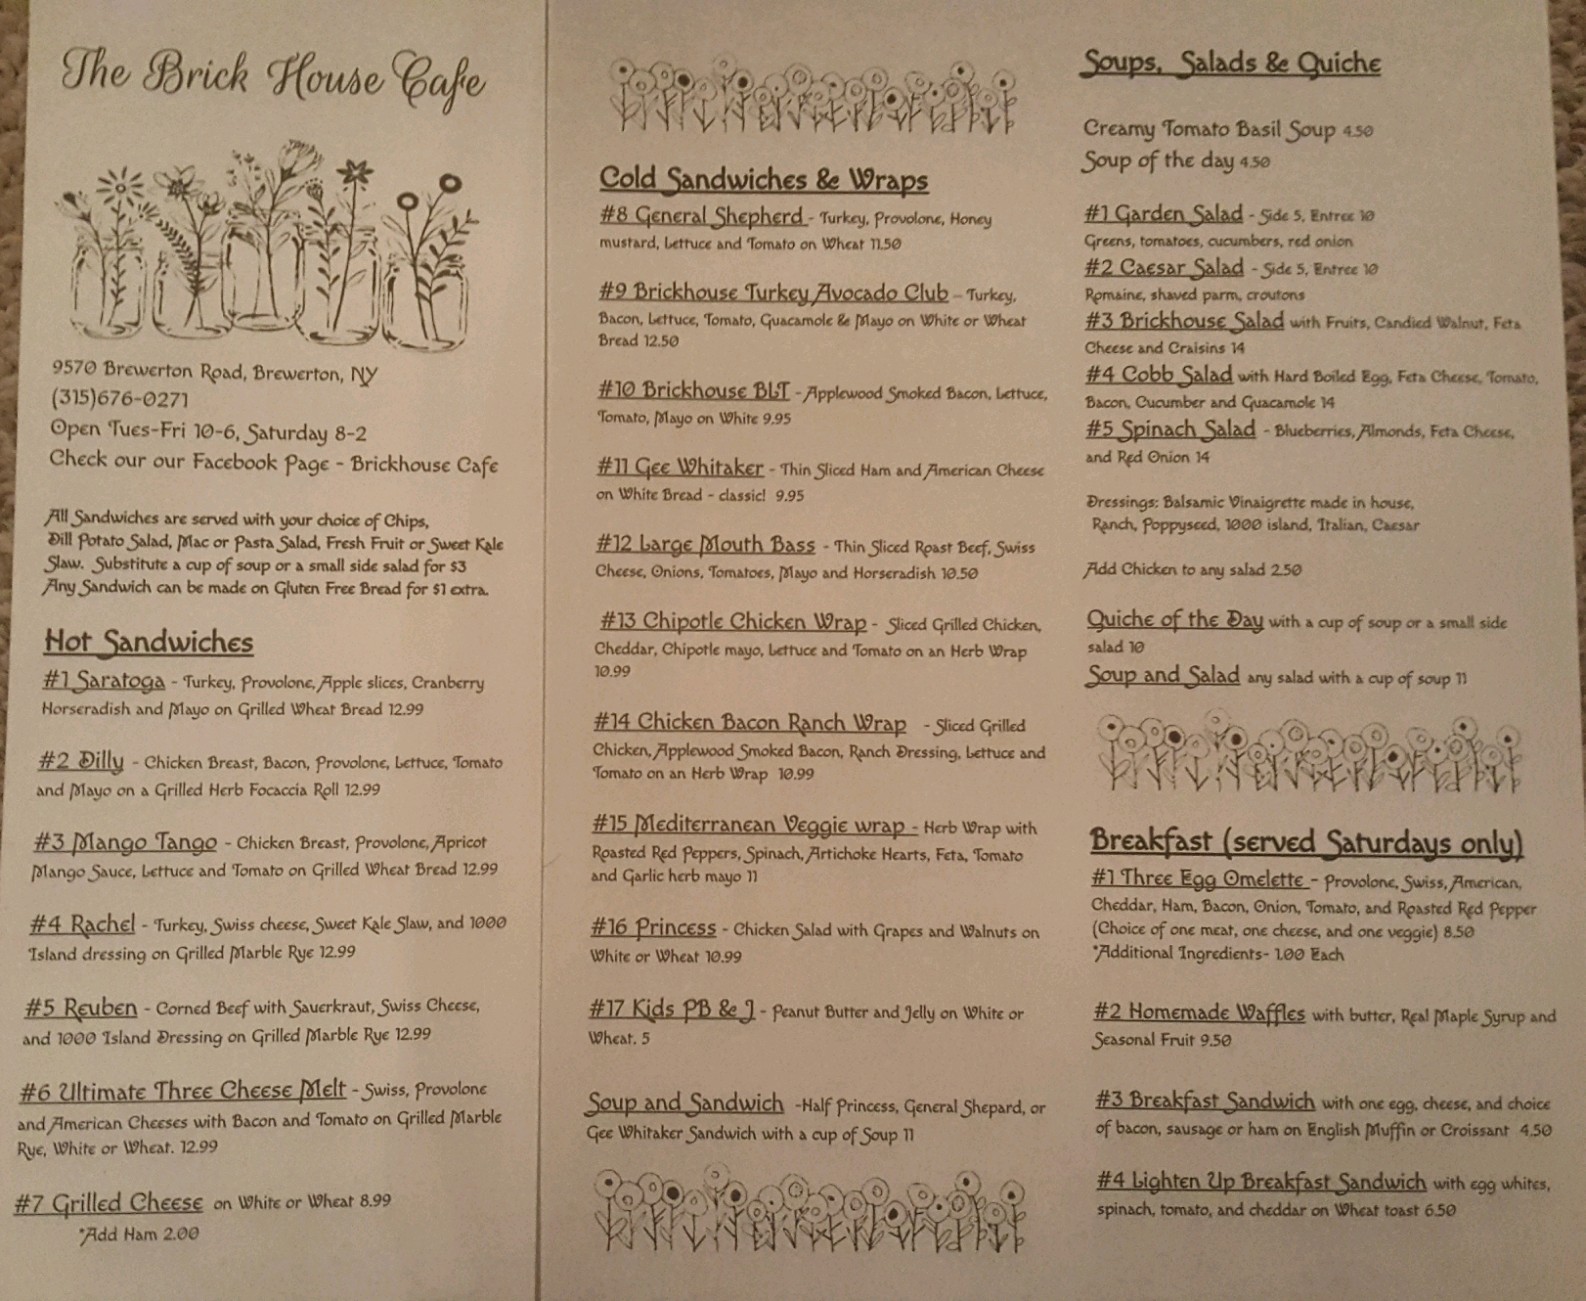 The Brick House Cafe
9570 Brewerton Road, Brewerton, NY
(315)676-0271
Open Tues-Fri 10-6, Saturday 8-2
Check our our Facebook Page - Brickhouse Cafe
All Sandwiches are served with your choice of Chips,
Dill Potato Salad, Mac or Pasta Salad, Fresh Fruit or Sweet Kale
Slaw. Substitute a cup of soup or a small side salad for $3
Any Sandwich can be made on Gluten Free Bread for $1 extra.
Hot Sandwiches
#1 Saratoga - Turkey, Provolone, Apple slices, Cranberry
Horseradish and Mayo on Grilled Wheat Bread 12.99
#2 Dilly - Chicken Breast, Bacon, Provolone, Lettuce, Tomato
and Mayo on a Grilled Herb Focaccia Roll 12.99
#3 Mango Tango - Chicken Breast, Provolone, Apricot
Mango Sauce, Lettuce and Tomato on Grilled Wheat Bread 12.99
#4 Rachel - Turkey, Swiss cheese, Sweet Kale Slaw, and 1000
Island dressing on Grilled Marble Rye 12.99
#5 Reuben - Corned Beef with Sauerkraut, Swiss Cheese,
and 1000 Island Dressing on Grilled Marble Rye 12.99
#6 Ultimate Three Cheese Melt - Swiss, Provolone
and American Cheeses with Bacon and Tomato on Grilled Marble
Rye, White or Wheat. 12.99
#7 Grilled Cheese on White or Wheat 8.99
*Add Ham 2.00
Cold Sandwiches & Wraps
#8 General Shepherd - Turkey, Provolone, Honey
mustard, Lettuce and Tomato on Wheat 11.50
#9 Brickhouse Turkey Avocado Club - Turkey,
Bacon, Lettuce, Tomato, Guacamole & Mayo on White or Wheat
Bread 12.50
#10 Brickhouse BLT - Applewood Smoked Bacon, Lettuce,
Tomato, Mayo on White 9.95
#11 Gee Whitaker - Thin Sliced Ham and American Cheese
on White Bread - classic! 9.95
#12 Large Mouth Bass - Thin Sliced Roast Beef, Swiss
Cheese, Onions, Tomatoes, Mayo and Horseradish 10.50
#13 Chipotle Chicken Wrap - Sliced Grilled Chicken,
Cheddar, Chipotle mayo, Lettuce and Tomato on an Herb Wrap
10.99
#14 Chicken Bacon Ranch Wrap - Sliced Grilled
Chicken, Applewood Smoked Bacon, Ranch Dressing, Lettuce and
Tomato on an Herb Wrap 10.99
#15 Mediterranean Veggie wrap - Herb Wrap with
Roasted Red Peppers, Spinach, Artichoke Hearts, Feta, Tomato
and Garlic herb mayo 11
#16 Princess - Chicken Salad with Grapes and Walnuts on
White or Wheat 10.99
#17 Kids PB & J - Peanut Butter and Jelly on White or
Wheat. 5
Soup and Sandwich -Half Princess, General Shepard, or
Gee Whitaker Sandwich with a cup of Soup 11
Soups, Salads & Quiche
Creamy Tomato Basil Soup 4.50
Soup of the day 4.50
#1 Garden Salad - Side 5, Entree 10
Greens, tomatoes, cucumbers, red onion
#2 Caesar Salad - Side 5, Entree 10
Romaine, shaved parm, croutons
#3 Brickhouse Salad with Fruits, Candied Walnut, Feta
Cheese and Craisins 14
#4 Cobb Salad with Hard Boiled Egg, Feta Cheese, Tomato,
Bacon, Cucumber and Guacamole 14
#5 Spinach Salad - Blueberries, Almonds, Feta Cheese,
and Red Onion 14
Dressings: Balsamic Vinaigrette made in house,
Ranch, Poppyseed, 1000 island, Italian, Caesar
Add Chicken to any salad 2.50
Quiche of the Day with a cup of soup or a small side
salad 10
Soup and Salad any salad with a cup of soup 11
Breakfast (served Saturdays only)
#1 Three Egg Omelette - Provolone, Swiss, American,
Cheddar, Ham, Bacon, Onion, Tomato, and Roasted Red Pepper
(Choice of one meat, one cheese, and one veggie) 8.50
*Additional Ingredients- 1.00 Each
#2 Homemade Waffles with butter, Real Maple Syrup and
Seasonal Fruit 9.50
#3 Breakfast Sandwich with one egg, cheese, and choice
of bacon, sausage or ham on English Muffin or Croissant 4.50
#4 Lighten Up Breakfast Sandwich with egg whites,
spinach, tomato, and cheddar on Wheat toast 6.50